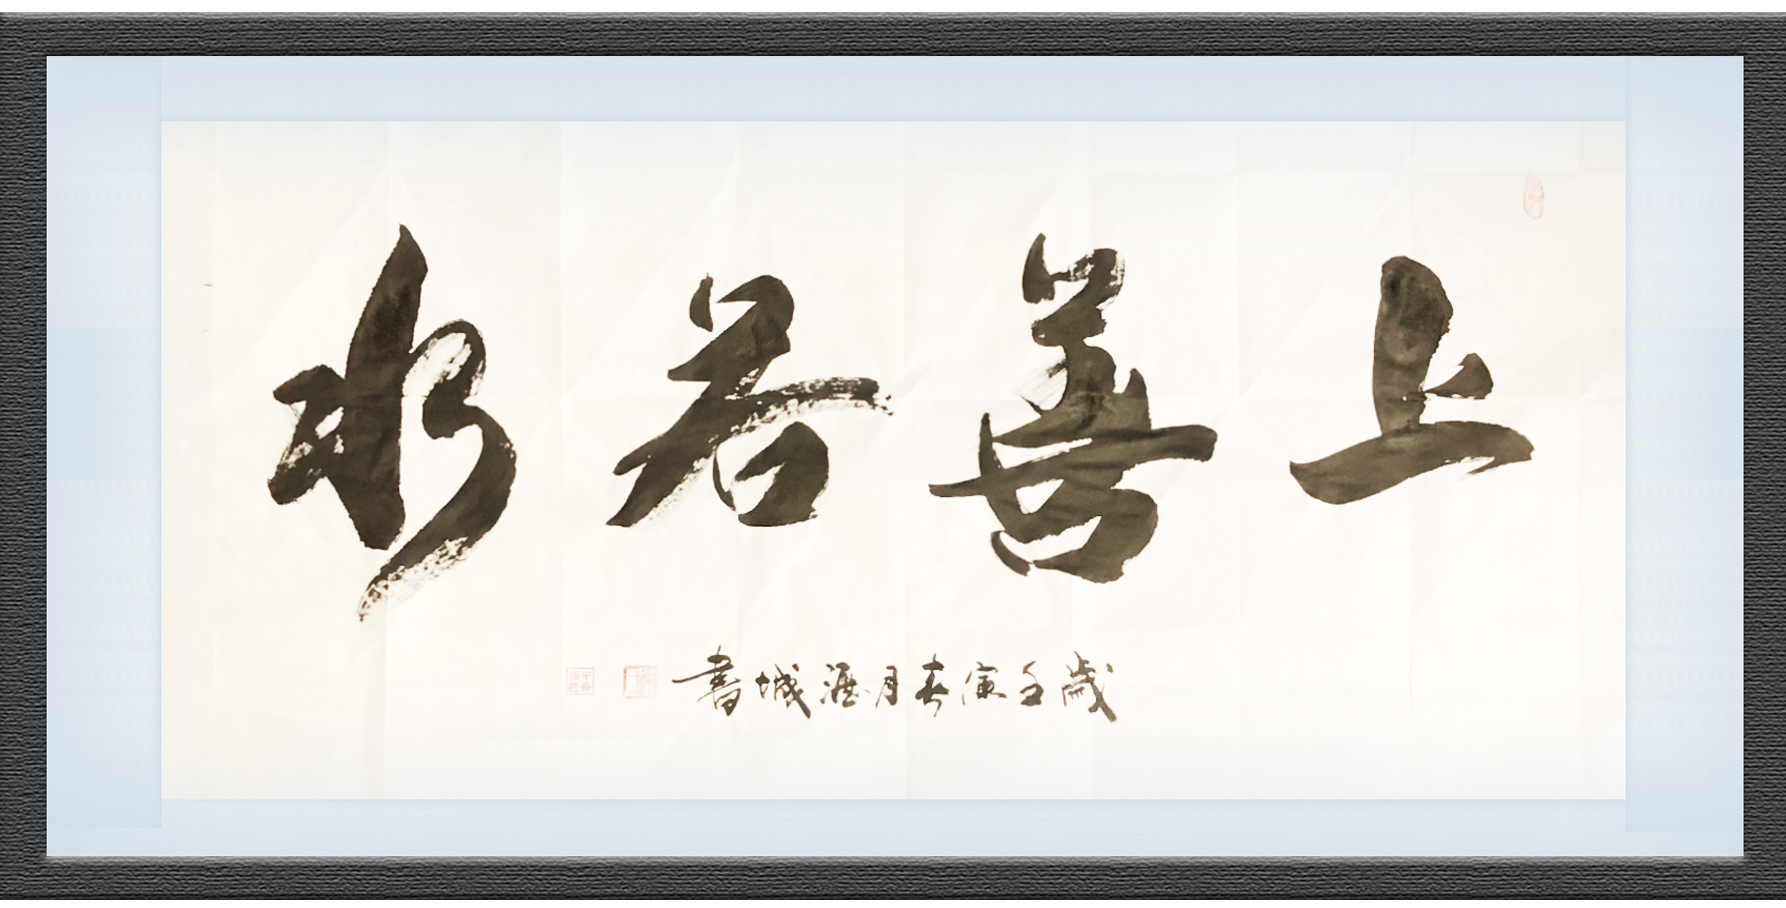 上善若水
歲壬寅春月涯城書